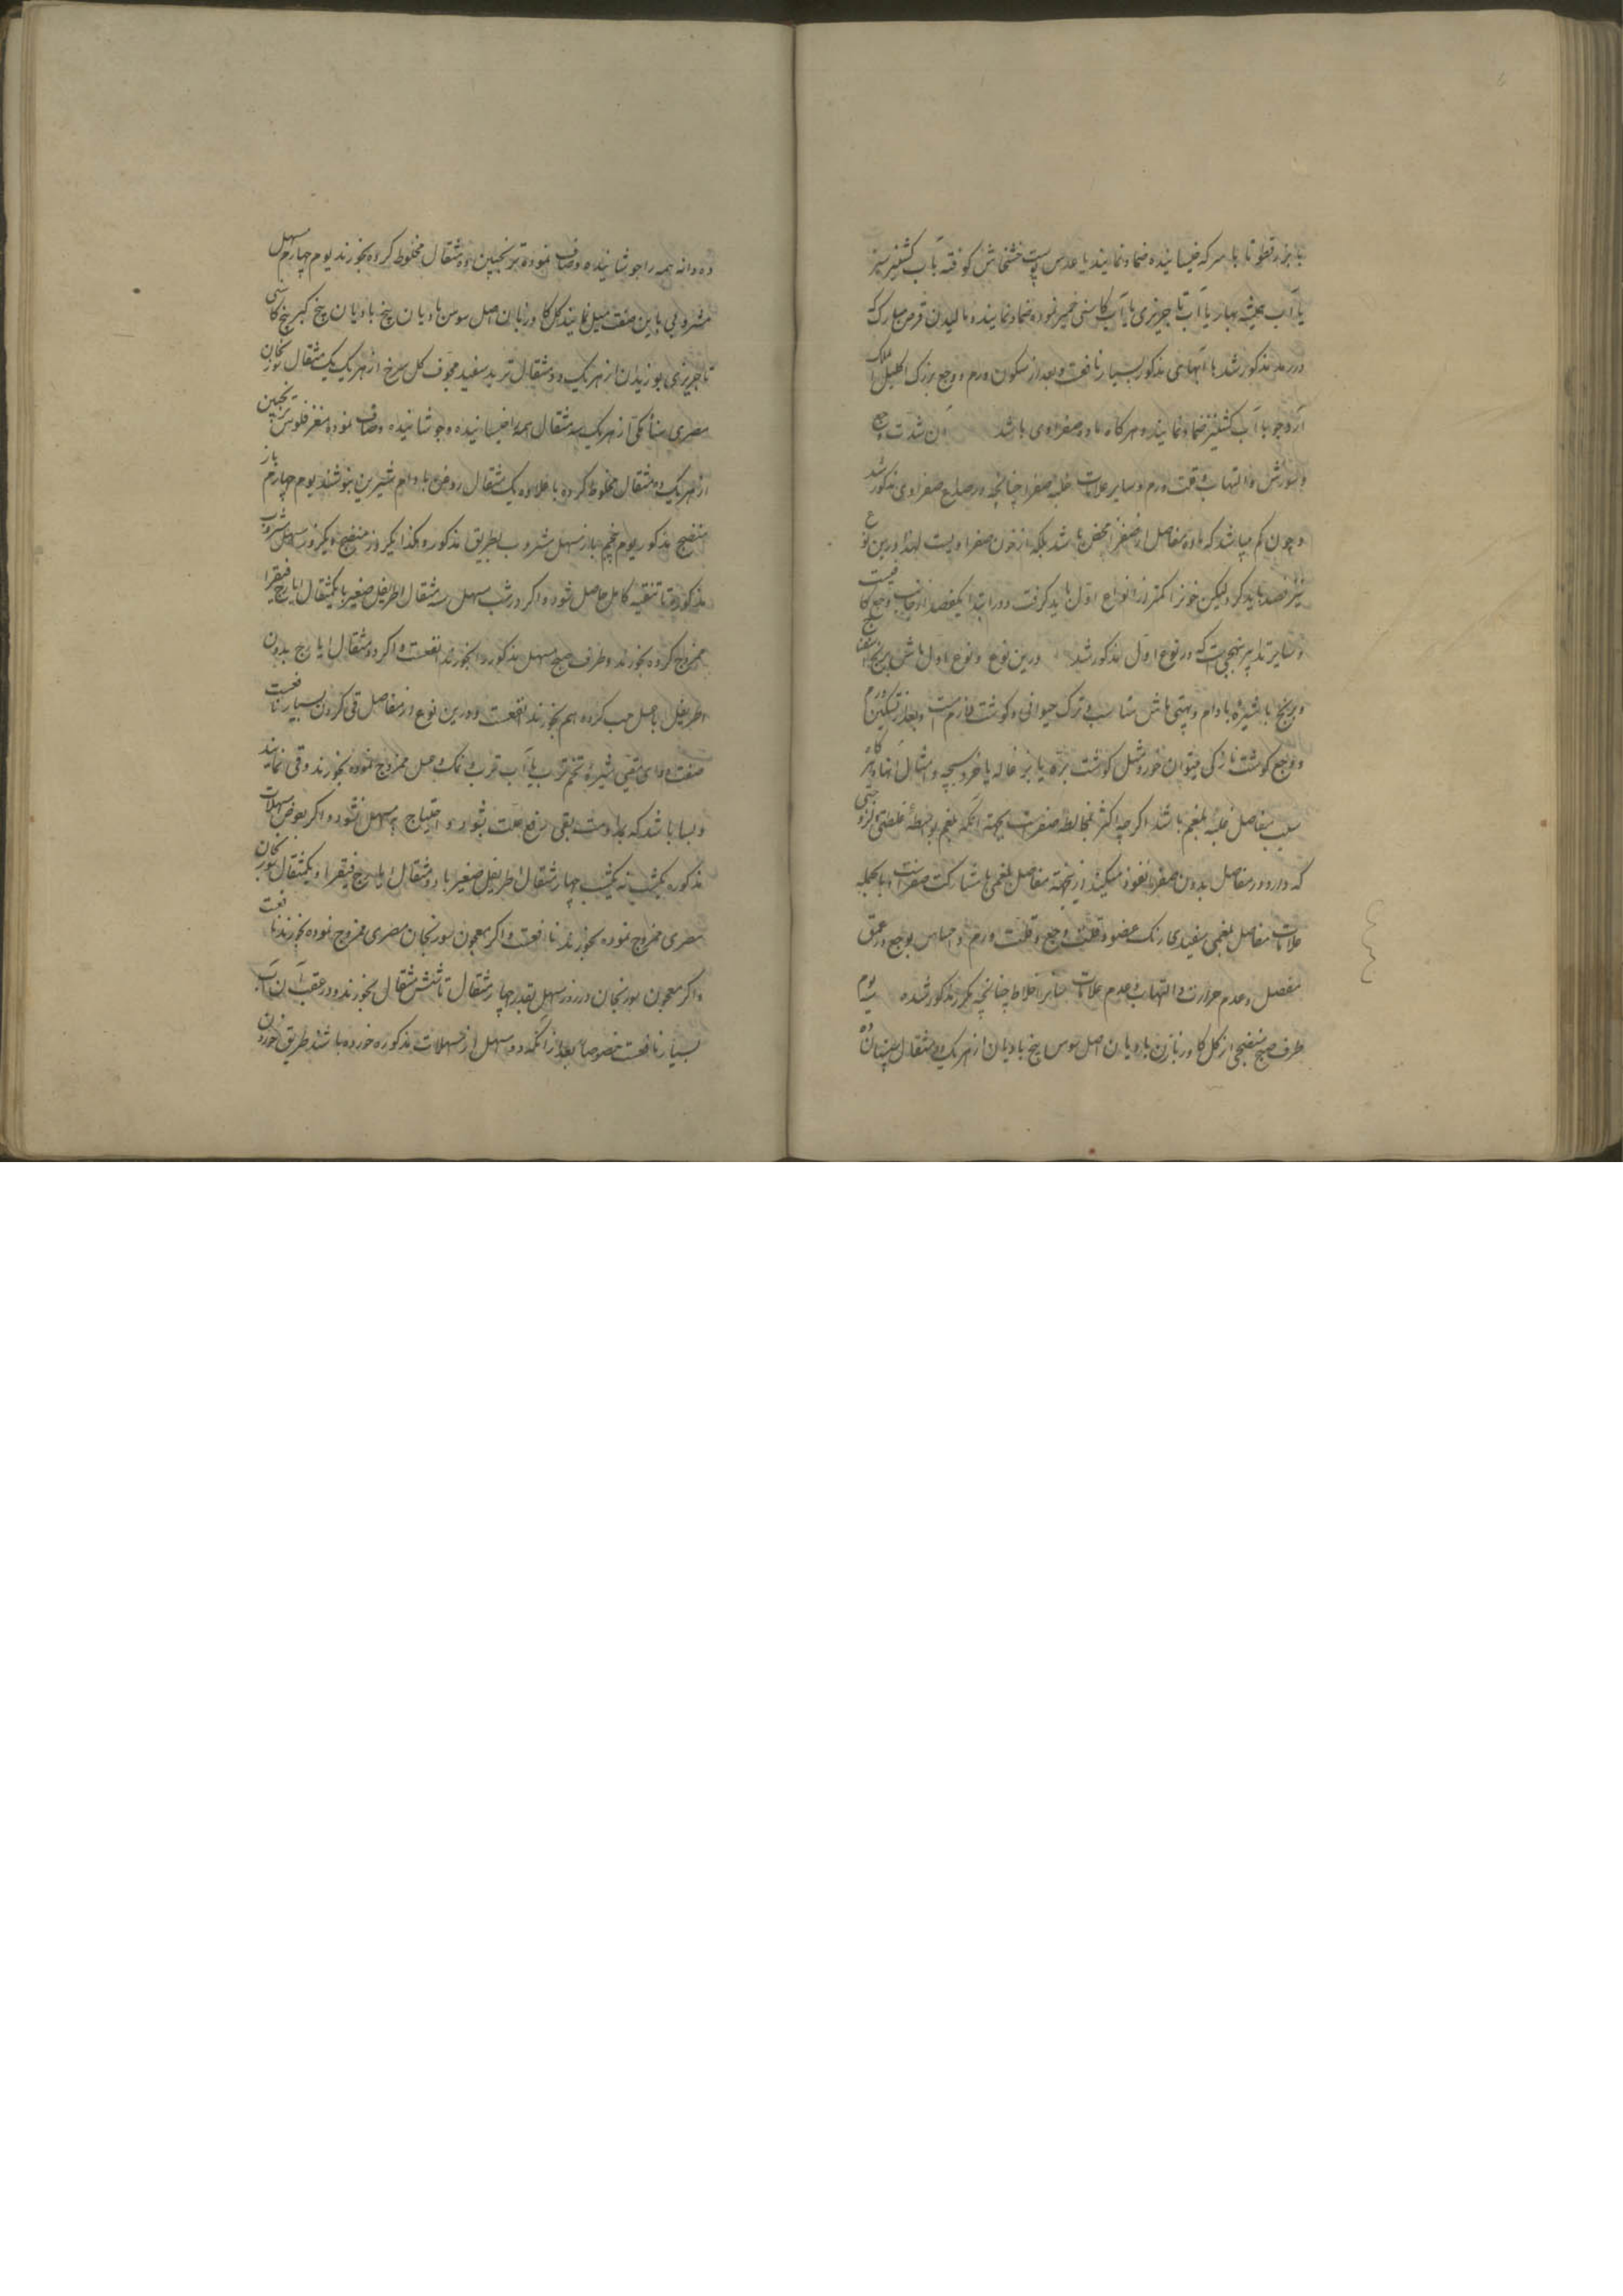 یا بزرقطونا با سرکه خیسانیده ضماد نمایند یا عدس پوست خشخاش کوفته بآب کشنیز سبز
یا آب همیشه بهار یا آب تاجریزی یا آب کاسنی خمیر نموده ضماد نمایند و مالیدن قرص مبارک که
در رمد مذکور شد با آبهای مذکور بسیار نافعست و بعد از سکون ورم و وجع بزرک اکلیل الملک
آرد جو با آب کشنیز ضماد نمایند و هرکاه ماده صفراوی باشد آن شدت وجع
و سوزش و التهاب و قلت ورم و سایر علامات غلبه صفرا چنانچه در صداع صفراوی مذکور شد
و چون کم میباشد که ماده مفاصل از صفرا محض باشد بلکه از خون صفراویست لهذا درین نوع
نیز فصد باید کرد لیکن خون کمتر از انواع اول باید کرفت و در ابتدا یکفصد از جانب وجع کافیست
و سایر تدابیر بنهجیست که در نوع اول مذکور شد درین نوع و نوع اول ماش برنج اسفناج
و برنج با شیره بادام و پهتی ماش مناسب و ترک حیوانی و کوشت لازمست و بعد از تسکین ورم
و وجع کوشت نازکی میتوان خورد مثل کوشت بره یا بزغاله یا خروسبچه و امثال آنها و اکثر
سبب مفاصل غلبه بلغم باشد اکرچه اکثر مخالط صفراست بجهة آنکه بلغم بواسطه غلظتی و لزوجتی
که دارد در مفاصل بدون صفرا نفوذ نمیکند ازینجهة مفاصل بلغمی با مشارکت صفراست و بالجمله
علامات مفاصل بلغمی سفیدی رنک عضو و قلت وجع و قلت ورم و احساس بوجع در عمق
مفصل و عدم حرارت و التهاب و عدم علامات سایر اخلاط چنانچه مکرر مذکور شده
طرف صبح منضجی از کل کاوزبان بادیان اصل سوس بیخ بادیان از هر یک دو مثقال سپستان ده
ده دانه همه را جوشانیده و صاف نموده ترنجبین ده مثقال مخلوط کرده بخورند یوم چهارم مسهل
مشروبی باین صفت میل نمایند کل کاوزبان اصل سوس بادیان بیخ بادیان بیخ کبر بیخ کاسنی
تاجریزی بوزیدان از هر یک دو مثقال تربد سفید مجوف کل سرخ از هر یک یک مثقال سورنجان
مصری سنا مکی از هر یک سه مثقال همه را خیسانیده و جوشانیده و صاف نموده مغز فلوس ترنجبین
از هر یک ده مثقال مخلوط کرده با علاوه یک مثقال روغن بادام شیرین بنوشند یوم چهارم باز
منضج مذکور یوم پنجم باز مسهل مشروب بطریق مذکور و هکذا یکروز منضج و یکروز مسهل مشروب
مذکور تا تنقیه کامل حاصل شود و اکر در شب مسهل سه مثقال اطریفل صغیر با یکمثقال ایارج فیقرا
ممزوج کرده بخورند و طرف صبح مسهل مذکور را بخورند انفعست و اکر دو مثقال ایارج بدون
اطریفل با عسل حب کرده هم بخورند انفعست و درین نوع از مفاصل قی کردن بسیار نافعست
صفت دوای مقیی شیره تخم ترب یا آب ترب و نمک و عسل ممزوج نموده بخورند و قی نمایند
و بسا باشد که بمداومت بقی رفع علت بشود و احتیاج به مسهل نشود و اکر بعوض مسهلات
مذکوره یکشب نه یکشب چهار مثقال اطریفل صغیر با دو مثقال ایارج فیقرا و یکمثقال سورنجان
مصری ممزوج نموده بخورند نافعست و اکر معجون سورنجان مصری ممزوج نموده بخورند نافعست
و اکر معجون سورنجان در روز مسهل بقدر چهار مثقال تا شش مثقال بخورند و در عقب آن آب
بسیار نافعست خصوصا بعد از آنکه دو مسهل از مسهلات مذکوره خورده باشند طریق خوردن